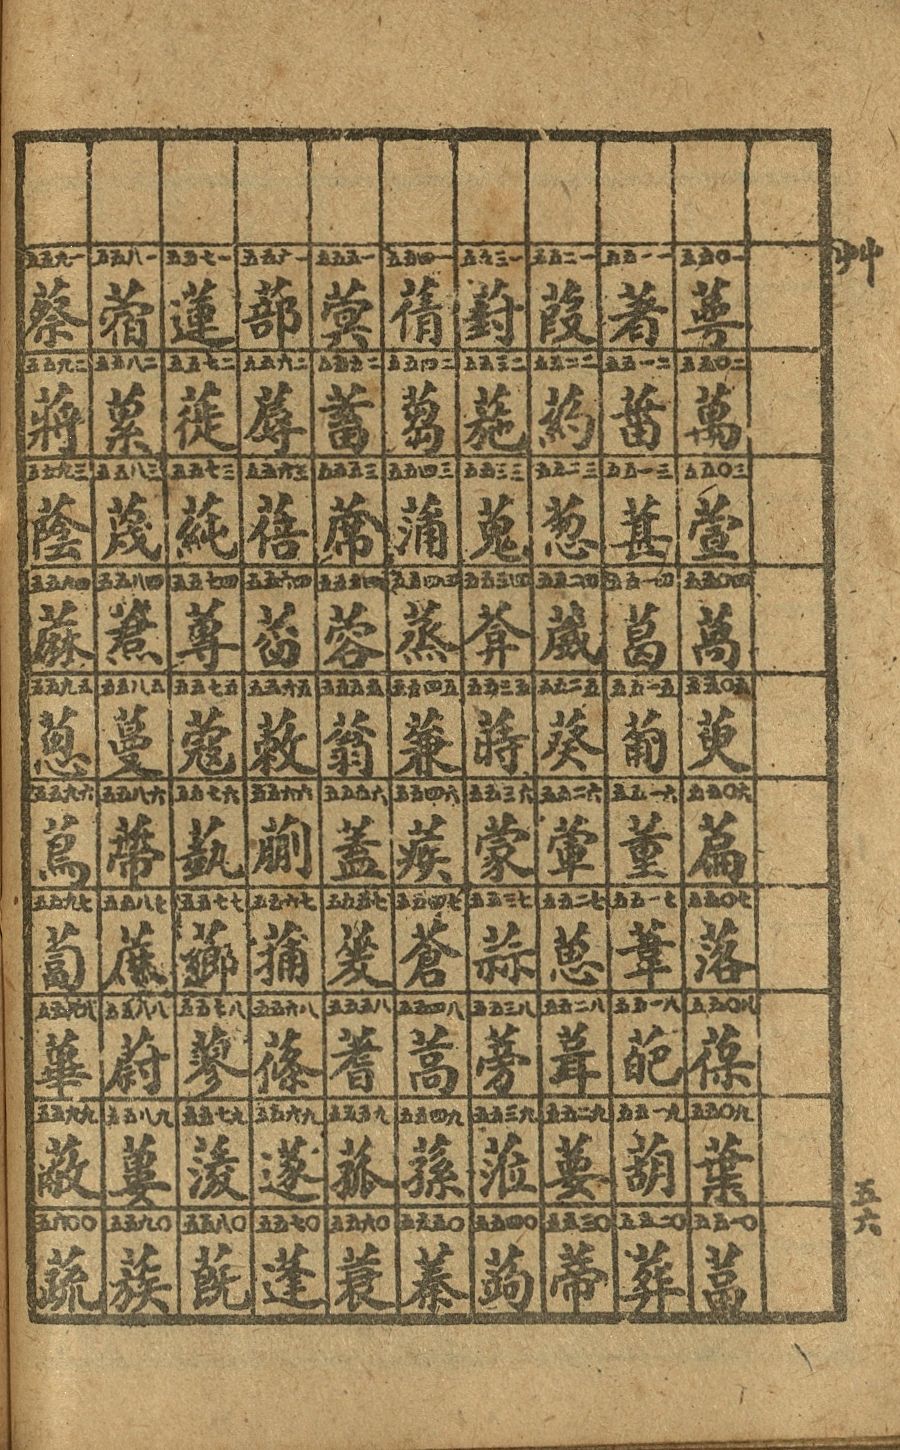 艸
五五〇一 萼 五五〇二 萬 五五〇三 萱 五五〇四 萵 五五〇五 萸 五五〇六 萹 五五〇七 落 五五〇八 葆 五五〇九 葉 五五一〇 葍
五五一一 著 五五一二 葘 五五一三 葚 五五一四 葛 五五一五 葡 五五一六 董 五五一七 葦 五五一八 葩 五五一九 葫 五五二〇 葬
五五二一 葭 五五二二 葯 五五二三 葱 五五二四 葳 五五二五 葵 五五二六 葷 五五二七 葸 五五二八 葺 五五二九 葽 五五三〇 蒂
五五三一 葑 五五三二 葹 五五三三 蒐 五五三四 葊 五五三五 蒔 五五三六 蒙 五五三七 蒜 五五三八 蒡 五五三九 蒞 五五四〇 蒟
五五四一 蒨 五五四二 蒭 五五四三 蒲 五五四四 蒸 五五四五 蒹 五五四六 蒺 五五四七 蒼 五五四八 蒿 五五四九 蓀 五五五〇 蓁
五五五一 蓂 五五五二 蓄 五五五三 蓆 五五五四 蓉 五五五五 蓊 五五五六 蓋 五五五七 蓌 五五五八 蓍 五五五九 蓏 五五六〇 蓑
五五六一 蔀 五五六二 蓐 五五六三 蓓 五五六四 五五六五 蔌 五五六六 蒯 五五六七 蒱 五五六八 蓧 五五六九 蓫 五五七〇 蓬
五五七一 蓮 五五七二 蓰 五五七三 蒓 五五七四 蓴 五五七五 蔻 五五七六 蓺 五五七七 薌 五五七八 蓼 五五七九 蔆 五五八〇 蔇
五五八一 蓿 五五八二 蔂 五五八三 蔑 五五八四 五五八五 蔓 五五八六 蔕 五五八七 蔗 五五八八 蔚 五五八九 蔞 五五九〇 蔟
五五九一 蔡 五五九二 蔣 五五九三 蔭 五五九四 蔴 五五九五 蔥 五五九六 蔦 五五九七 蔔 五五九八 蓽 五五九九 蔽 五六〇〇 蔬
五六